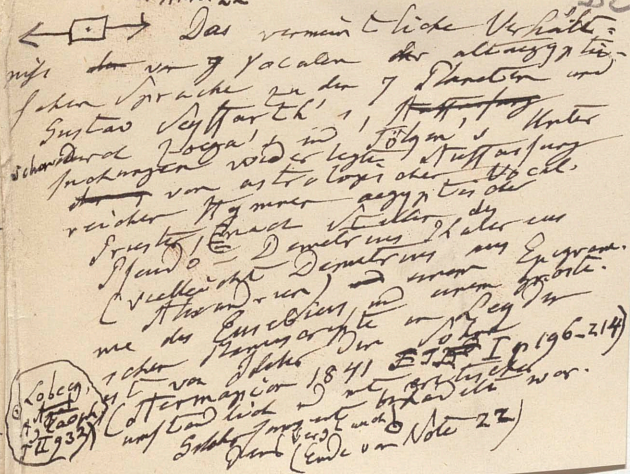 Das vermeintliche Verhält=
niß von 7 Vocalen der altaegypti=
schen Sprache zu den 7 Planeten und
Gustav Seyffarth's,
schon durch Zoega's und Tölken's Unter
suchungen widerlegte Auffassung
von astrologischer Vocal=
reicher Hymnen aegyptischer
Priester, nach Stellen des
Pseudo-Demetrius Phalereus
(vielleicht Demetrius aus
Alexandrien) einem Epigram=
me des Eusebius und einem gnosti=
schen Manuscripte in Leyden
ist von Ideler dem Sohne
(Hermapion 1841 I p 196-214)
umständlich und mit kritischer
Gelehrsamkeit behandelt wor=
den (vergl auch
(Ende von Note 22)
Lobeck,
Aglaoph
T II 932)